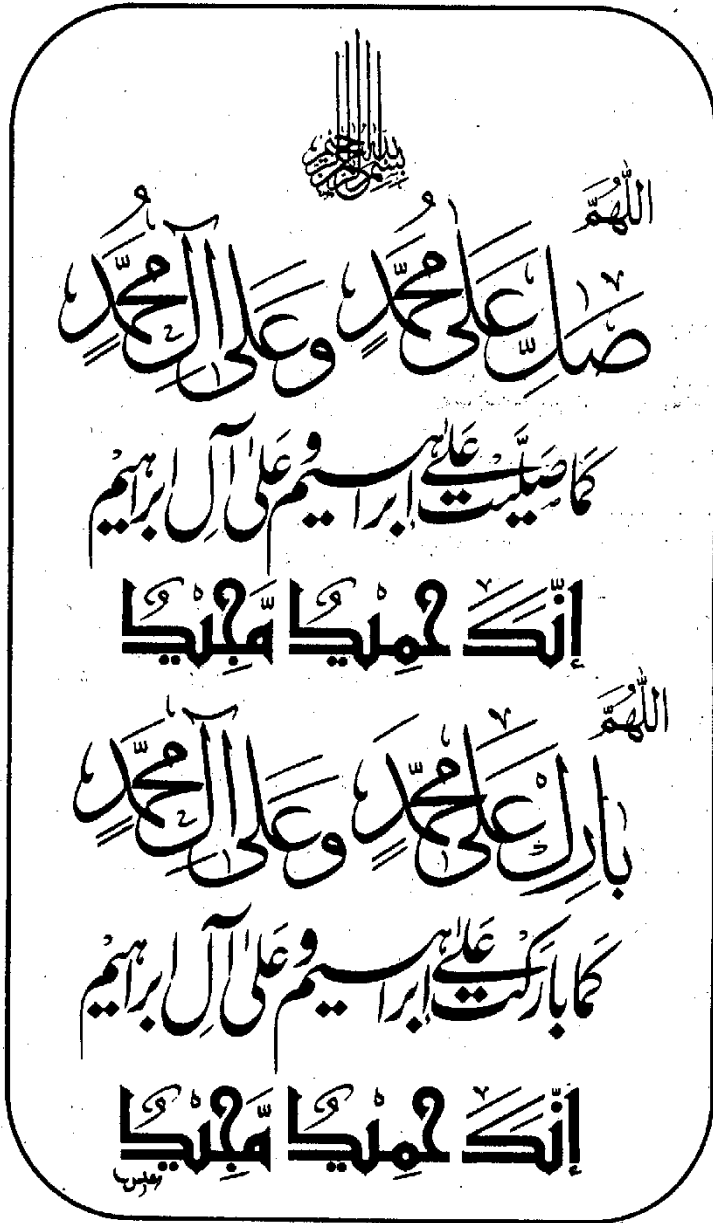 بسم الله الرحمن الرحيم
اللّٰهُمَّ
صَلِّ عَلٰى مُحَمَّدٍ وَّعَلٰى آلِ مُحَمَّدٍ
كَمَا صَلَّيْتَ عَلٰى اِبْرَاهِيْمَ وَعَلٰى آلِ اِبْرَاهِيْمَ
إِنَّكَ حَمِيْدٌ مَّجِيْدٌ
اللّٰهُمَّ
بَارِكْ عَلٰى مُحَمَّدٍ وَّعَلٰى آلِ مُحَمَّدٍ
كَمَا بَارَكْتَ عَلٰى اِبْرَاهِيْمَ وَعَلٰى آلِ اِبْرَاهِيْمَ
إِنَّكَ حَمِيْدٌ مَّجِيْدٌ